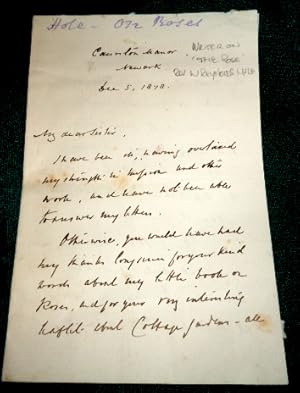 Hole - On Roses
Caunton Manor
Newark
Dec 5, 1870.
WRITER ON
'THE ROSE'
REV W REYNOLDS HOLE
My dear Sister,
I have been ill, having overtaxed
my strength in mission and other
work, and have not been able
to answer my letters.
Otherwise, you would have had
my thanks long since for your kind
words about my little book on
Roses, and for your very interesting
about Cottage Gardens - all